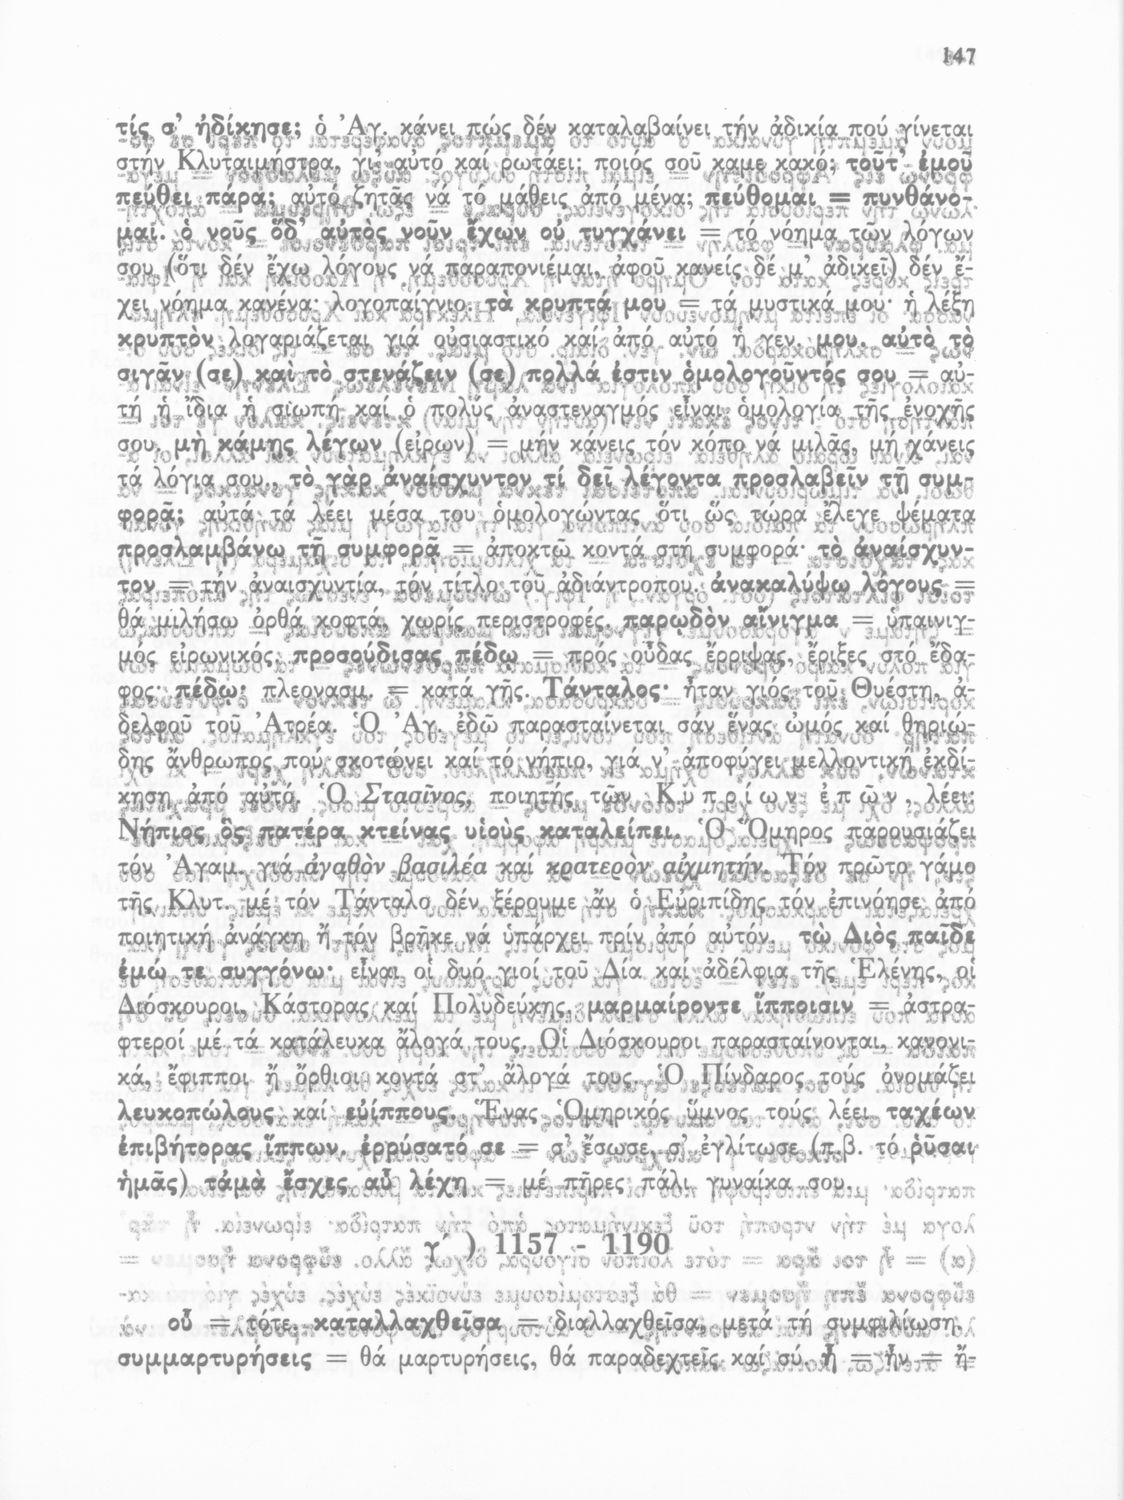 147
τίς σ' ἠδίκησε; ὁ 'Αγ. κάνει πώς δέν καταλαβαίνει τήν ἀδικία πού γίνεται
στήν Κλυταιμήστρα, γι' αὐτό καί ρωτάει: ποιός σοῦ καμε κακό; τοῦτ' ἐμοῦ
πεύθει πάρα; αὐτό ζητᾶς νά τό μάθεις ἀπό μένα; πεύθομαι = πυνθάνο-
μαί. ὁ νοῦς ὅδ' αὐτὸς νοῦν ἔχων οὐ τυγχάνει = τό νόημα τῶν λόγων
σου (ὅτι δέν ἔχω λόγους νά παραπονιέμαι, ἀφοῦ κανείς δέ μ' ἀδικεῖ) δέν ἔ-
χει νόημα κανένα· λογοπαίγνιο. τὰ κρυπτά μου = τά μυστικά μου· ἡ λέξη
κρυπτὸν λογαριάζεται γιά οὐσιαστικό καί ἀπό αὐτό ἡ γεν. μου. αὐτὸ τὸ
σιγᾶν (σε) καὶ τὸ στενάζειν (σε) πολλά ἐστιν ὁμολογοῦντός σου = αὐ-
τή ἡ ἴδια ἡ σιωπή καί ὁ πολύς ἀναστεναγμός εἶναι ὁμολογία τῆς ἐνοχῆς
σου. μὴ κάμης λέγων (εἴρων) = μήν κάνεις τόν κόπο νά μιλᾶς, μή χάνεις
τά λόγια σου. τὸ γὰρ ἀναίσχυντον τί δεῖ λέγοντα προσλαβεῖν τῇ συμ-
φορᾷ; αὐτά τά λέει μέσα του ὁμολογώντας ὅτι ὥς τώρα ἔλεγε ψέματα
προσλαμβάνω τῇ συμφορᾷ = ἀποκτῶ κοντά στή συμφορά· τὸ ἀναίσχυν-
τον = τήν ἀναισχυντία, τόν τίτλο τοῦ ἀδιάντροπου. ἀνακαλύψω λόγους =
θά μιλήσω ὀρθά κοφτά, χωρίς περιστροφές. παρῳδὸν αἴνιγμα = ὑπαινιγ-
μός εἰρωνικός. προσούδισας πέδῳ = πρός οὖδας ἔρριψας, ἔριξες στό ἔδα-
φος· πέδῳ· πλεονασμ. = κατά γῆς. Τάνταλος· ἦταν γιός τοῦ Θυέστη, ἀ-
δελφοῦ τοῦ 'Ατρέα. Ὁ 'Αγ. ἐδῶ παρασταίνεται σάν ἕνας ὠμός καί θηριώ-
δης ἄνθρωπος πού σκοτώνει καί τό νήπιο, γιά ν' ἀποφύγει μελλοντική ἐκδί-
κηση ἀπό αὐτό. Ὁ Στασῖνος, ποιητής τῶν Κυπρίων ἐπῶν, λέει:
Νήπιος ὃς πατέρα κτείνας υἱοὺς καταλείπει. Ὁ Ὅμηρος παρουσιάζει
τόν 'Αγαμ. γιά ἀγαθὸν βασιλέα καί κρατερὸν αἰχμητήν. Τόν πρῶτο γάμο
τῆς Κλυτ. μέ τόν Τάνταλο δέν ξέρουμε ἄν ὁ Εὐριπίδης τόν ἐπινόησε ἀπό
ποιητική ἀνάγκη ἤ τόν βρῆκε νά ὑπάρχει πρίν ἀπό αὐτόν. τὼ Διὸς παῖδε
ἐμώ τε συγγόνω· εἶναι οἱ δυό γιοί τοῦ Δία καί ἀδέλφια τῆς Ἑλένης, οἱ
Διόσκουροι, Κάστορας καί Πολυδεύκης. μαρμαίροντε ἵπποισιν = ἀστρα-
φτεροί μέ τά κατάλευκα ἄλογά τους. Οἱ Διόσκουροι παρασταίνονται, κανονι-
κά, ἔφιπποι ἤ ὄρθιοι κοντά στ' ἄλογά τους. Ὁ Πίνδαρος τούς ὀνομάζει
λευκοπώλους καί εὐίππους. Ἕνας Ὁμηρικός ὕμνος τούς λέει ταχέων
ἐπιβήτορας ἵππων. ἐρρύσατό σε = σ' ἔσωσε, σ' ἐγλίτωσε (π.β. τό ῥῦσαι
ἡμᾶς) τἀμὰ ἔσχες αὖ λέχη = μέ πῆρες πάλι γυναίκα σου.
γ´ ) 1157 - 1190
οὗ = τότε. καταλλαχθεῖσα = διαλλαχθεῖσα, μετά τή συμφιλίωση.
συμμαρτυρήσεις = θά μαρτυρήσεις, θά παραδεχτεῖς καί σύ. ἦ = ἦν = ἤ-